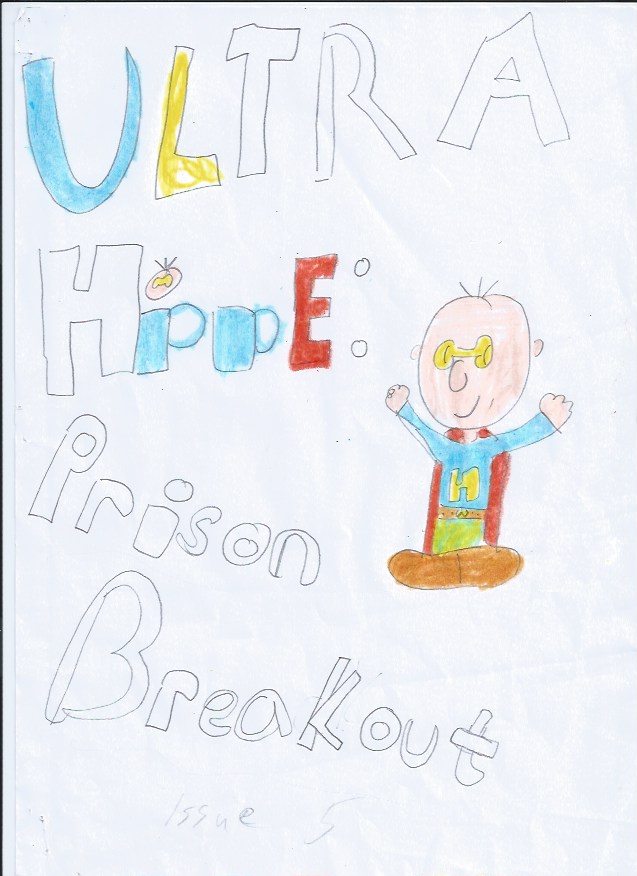 ULTRA
HippE:
Prison
Breakout
Issue 5
H